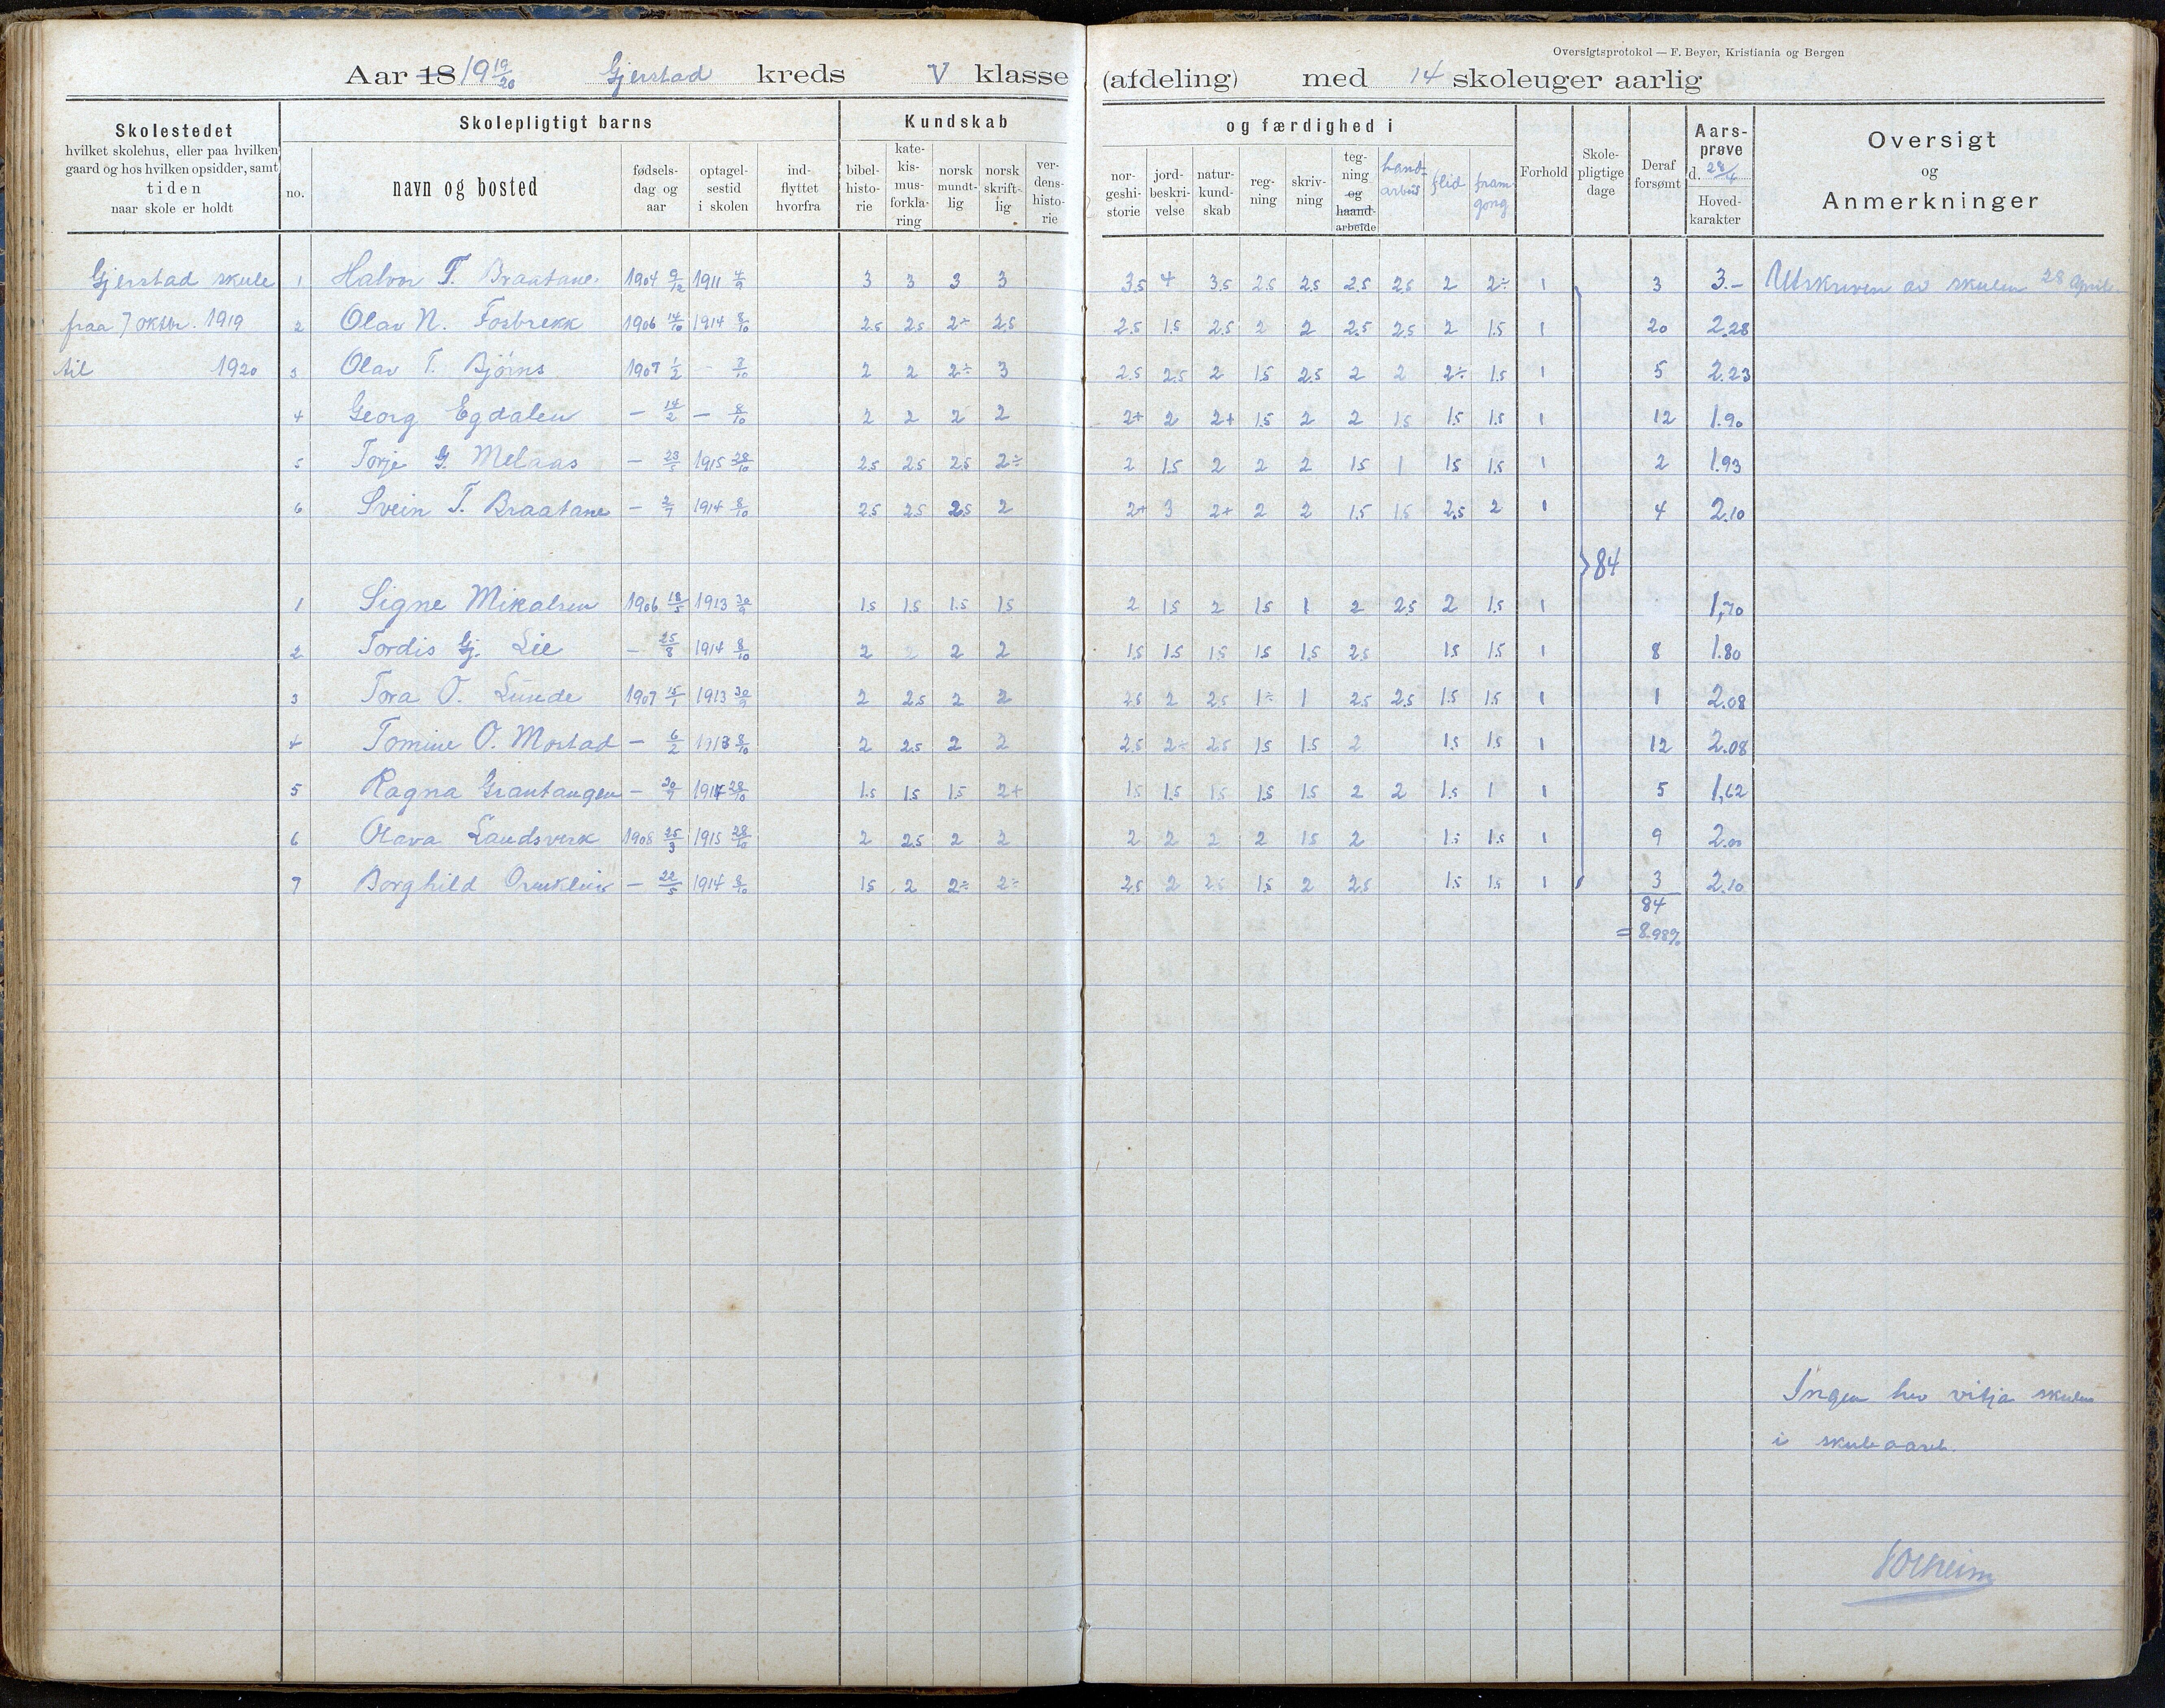 Oversigtsprotokol — F. Beyer, Kristiania og Bergen
Aar 18 1919/20 Gjerstad kreds V klasse (afdeling) med 14 skoleuger aarlig
Skolestedet
hvilket skolehus, eller paa hvilken
gaard og hos hvilken opsidder, samt
tiden
naar skole er holdt
Skolepligtigt barns
no.
navn og bosted
fødsels-
dag og
aar
optagel-
sestid
i skolen
ind-
flyttet
hvorfra
Kundskab
bibel-
histo-
rie
kate-
kis-
mus-
forkla-
ring
norsk
mundt-
lig
norsk
skrift-
lig
ver-
dens-
histo-
rie
og færdighed i
nor-
geshi-
storie
jord-
beskri-
velse
natur-
kund-
skab
reg-
ning
skriv-
ning
teg-
ning
og
haand-
arbeide
hand-
arbeid
flid
fram-
gong
Forhold
Skole-
pligtige
dage
Deraf
forsømt
Aars-
prøve
d. 28/4
Hoved-
karakter
Oversigt
og
Anmerkninger
Gjerstad skule 1 Halvor T. Braatane. 1904 9/12 1911 4/9 3 3 3 3 3.5 4 3.5 2.5 2.5 2.5 2.5 2 2÷ 1 3 3.– Utskriven av skulen 28 april.
fraa 7 oktbr. 1919 2 Olav N. Fosbrekk 1906 14/10 1914 8/10 2.5 2.5 2÷ 2.5 2.5 1.5 2.5 2 2 2.5 2.5 2 1.5 1 20 2.28
til 1920 3 Olav T. Bjørns 1907 1/2 - 7/10 2 2 2÷ 3 2.5 2.5 2 1.5 2.5 2 2 2÷ 1.5 1 5 2.23
4 Georg Egdalen — 14/2 — 8/10 2 2 2 2 2+ 2 2+ 1.5 2 2 1.5 1.5 1.5 1 12 1.90
5 Torje G. Melaas — 23/5 1915 28/10 2.5 2.5 2.5 2÷ 2 1.5 2 2 2 1.5 1 1.5 1.5 1 2 1.93
6 Svein T. Braatane — 2/7 1914 8/10 2.5 2.5 2.5 2 2+ 3 2+ 2 2 1.5 1.5 2.5 2 1 4 2.10
84
1 Signe Mikalsen 1906 18/5 1913 30/9 1.5 1.5 1.5 1.5 2 1.5 2 1.5 1 2 2.5 2 1.5 1 1,70
2 Tordis Gj. Lie — 25/8 1914 8/10 2 2 2 2 1.5 1.5 1.5 1.5 1.5 2.5 1.5 1.5 1 8 1.80
3 Tora O. Lunde 1907 15/1 1913 30/9 2 2.5 2 2 2.5 2 2.5 1÷ 1 2.5 2.5 1.5 1.5 1 1 2.08
4 Tomine O. Mostad — 6/2 1913 8/10 2 2.5 2 2 2.5 2÷ 2.5 1.5 1.5 2 1.5 1.5 1 12 2.08
5 Ragna Grantangen — 20/7 1914 28/10 1.5 1.5 1.5 2+ 1.5 1.5 1.5 1.5 1.5 2 2 1.5 1 1 5 1,62
6 Olava Landsverk 1908 25/3 1915 28/10 2 2.5 2 2 2 2 2 2 1.5 2 1.5 1.5 1 9 2.00
7 Borghild — 22/5 1914 8/10 1.5 2 2÷ 2÷ 2.5 2 2.5 1.5 2 2.5 1.5 1.5 1 3 2.10
84
= 8.98%
Ingen hev vitja skulen
i skuleaaret.